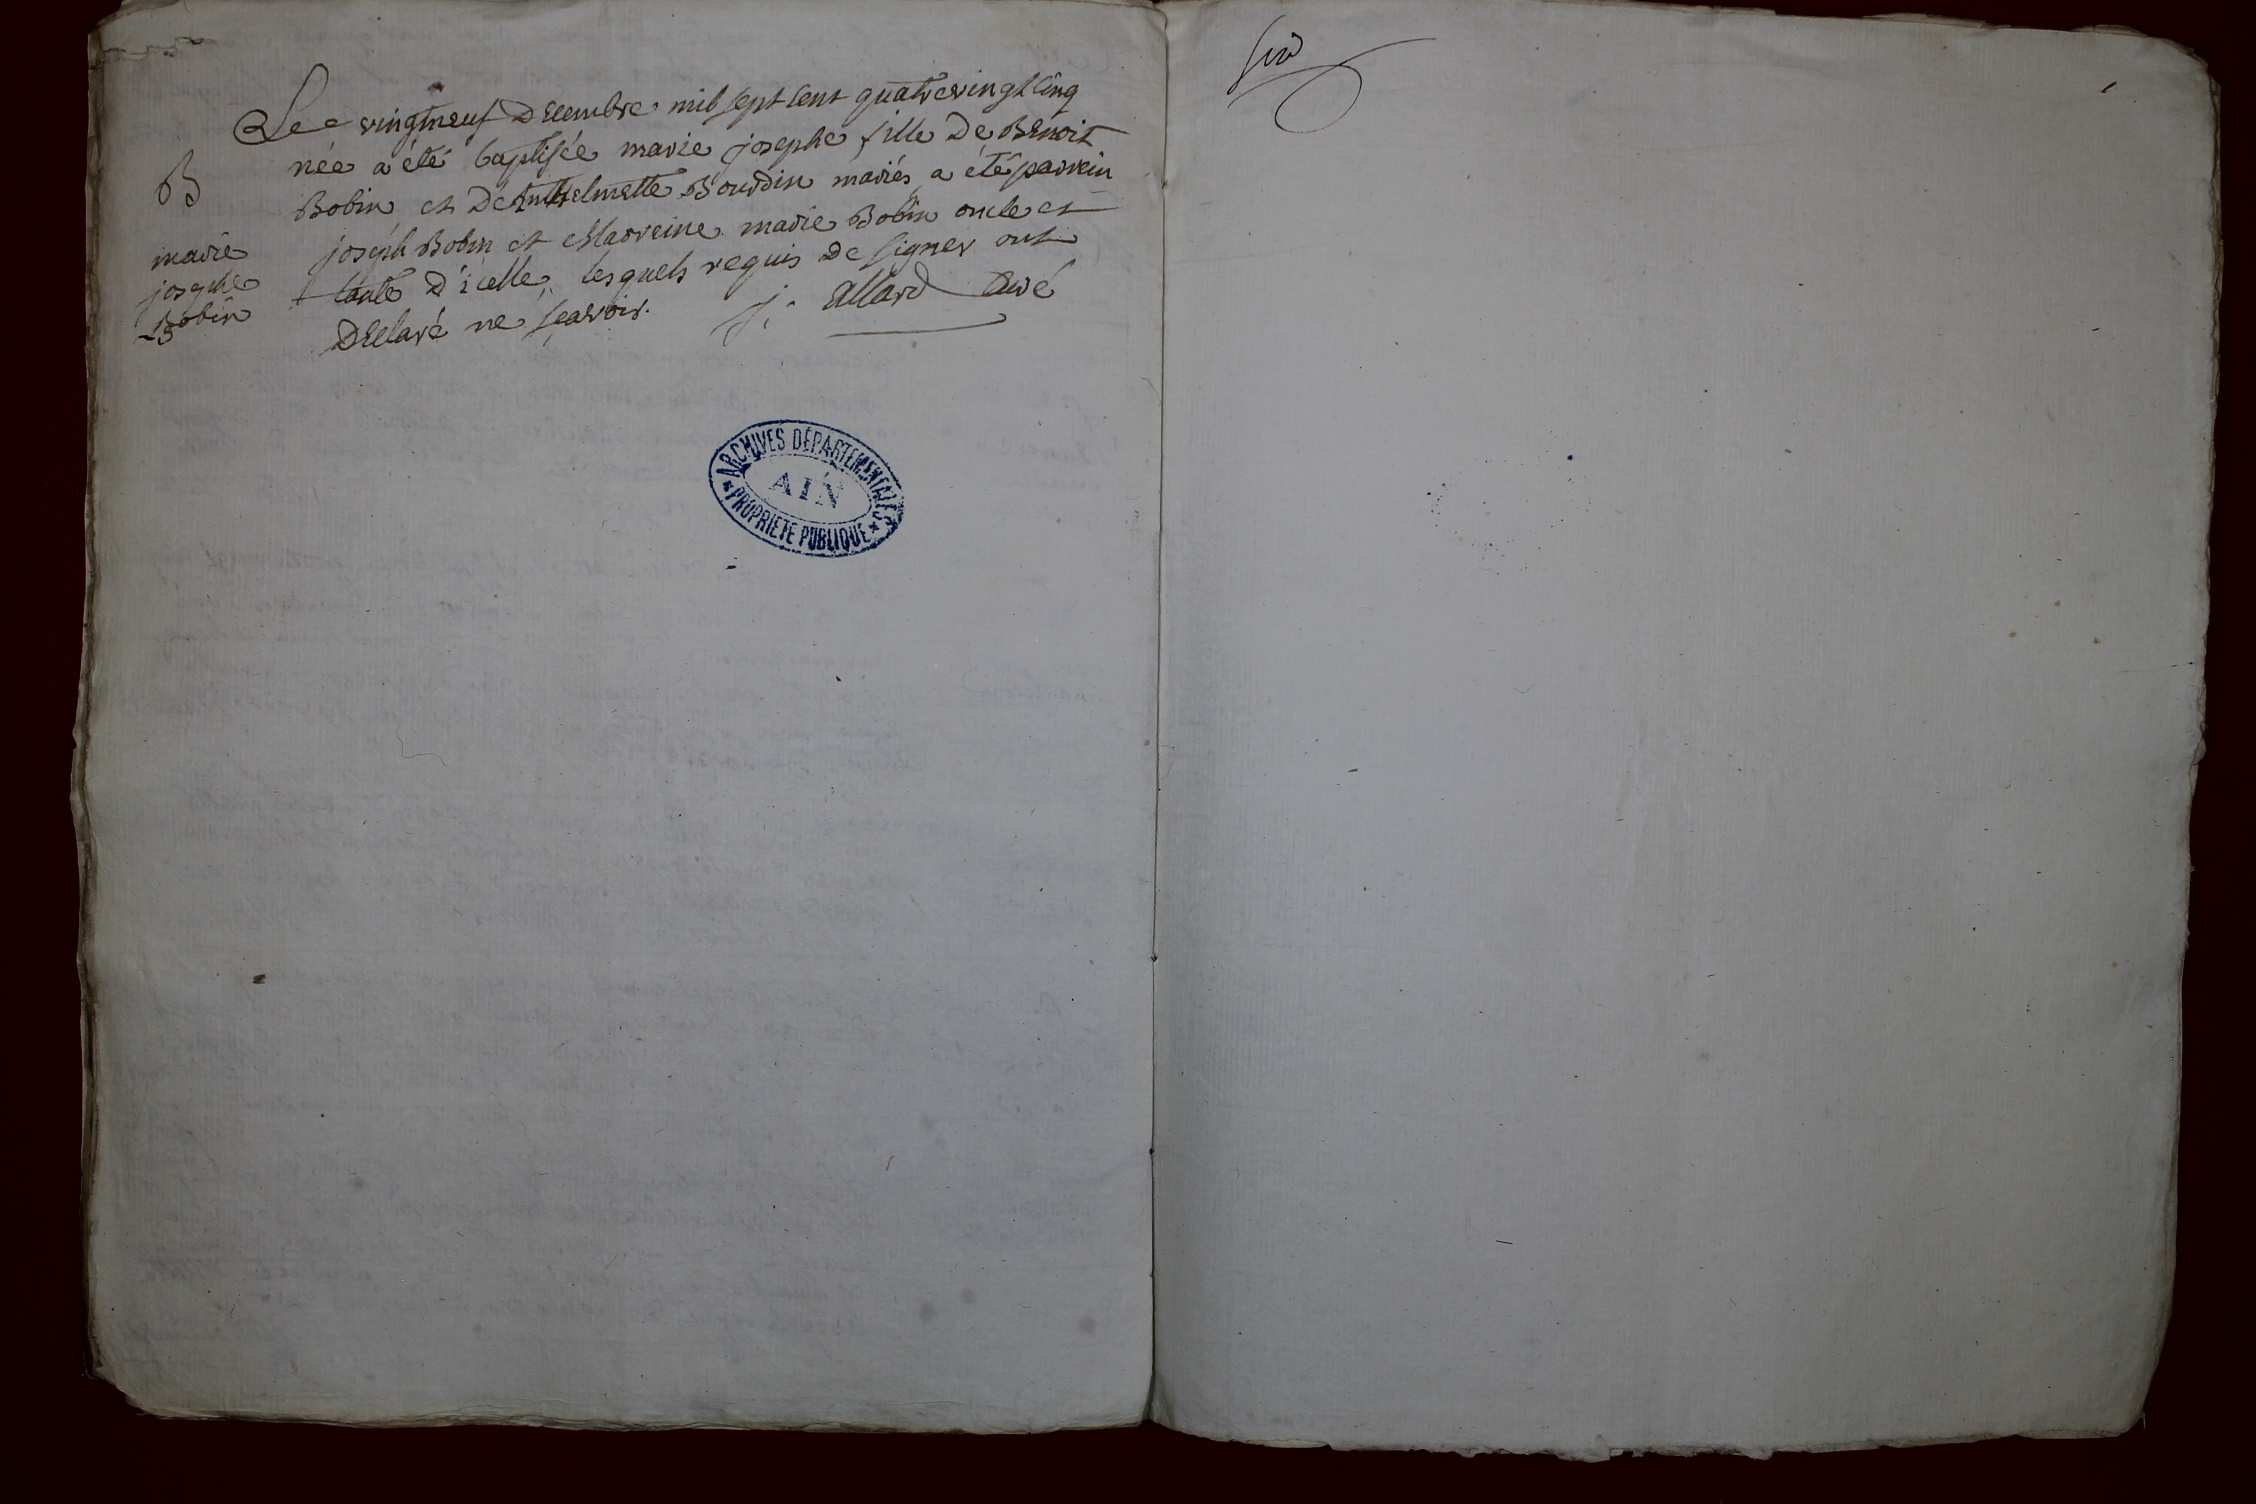 Le vingtneuf Decembre mil sept cent quatrevingtcinq
née a été baptisée marie josephe fille De Benoit
B
Bobin et De Anthelmette Bourdin mariés a été parrein
marie
josephe
Bobin
joseph Bobin et Marreine marie Bobin oncle et
tante d'icelle, lesquels requis De signer ont
Declaré ne sçavoir. j. allard curé
ARCHIVES DÉPARTEMENTALES
AIN
PROPRIÉTÉ PUBLIQUE